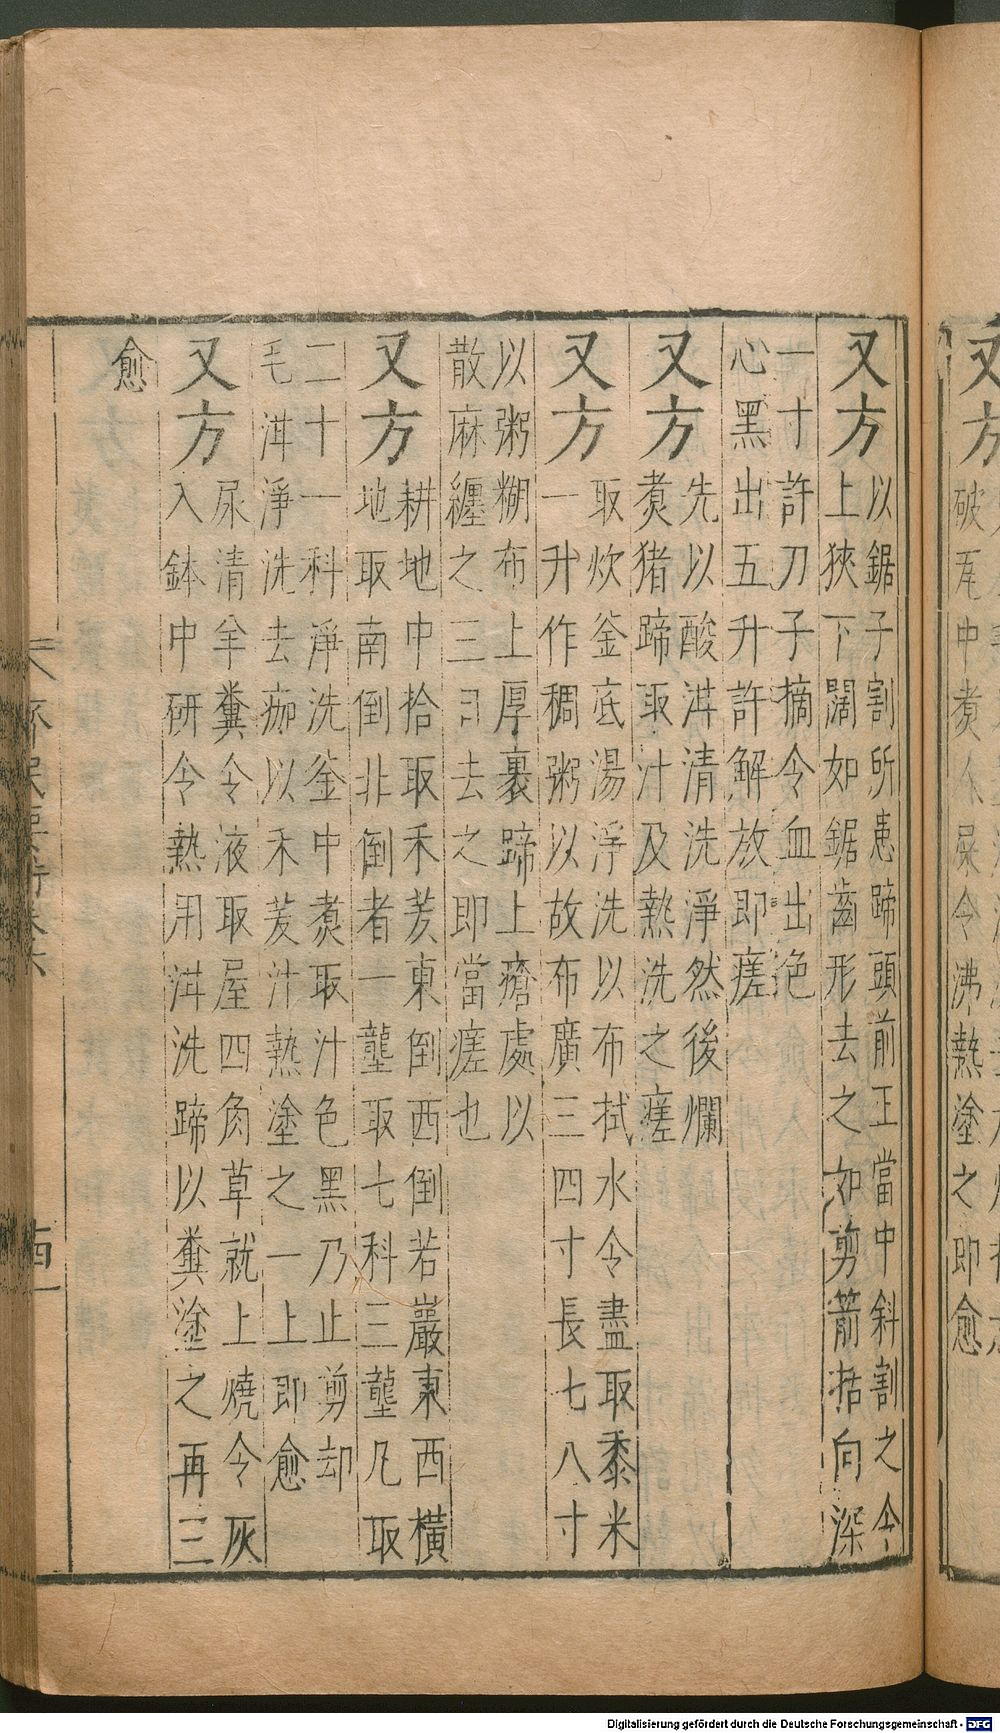 又方
破瓦中煮人屎令沸熱塗之即愈
又方
以鋸子割所患蹄頭前正當中斜割之令
上狹下闊如鋸齒形去之如剪箭括向深
一寸許刀子摘令血出色
心黑出五升許解放即瘥
又方
先以酸泔清洗淨然後爛
煮猪蹄取汁及熱洗之瘥
又方
取炊釜底湯淨洗以布拭水令盡取黍米
一升作稠粥以故布廣三四寸長七八寸
以粥糊布上厚裹蹄上瘡處以
散麻纏之三日去之即當瘥也
又方
耕地中拾取禾茇東倒西倒若巖東西橫
地取南倒非倒者一壟取七科三壟凡取
二十一科淨洗釜中煮取汁色黑乃止剪却
毛泔淨洗去痂以禾茇汁熱塗之一上即愈
又方
尿清羊糞令液取屋四角草就上燒令灰
入鉢中研令熱用泔洗蹄以糞塗之再三
愈
Digitalisierung gefördert durch die Deutsche Forschungsgemeinschaft - DFG